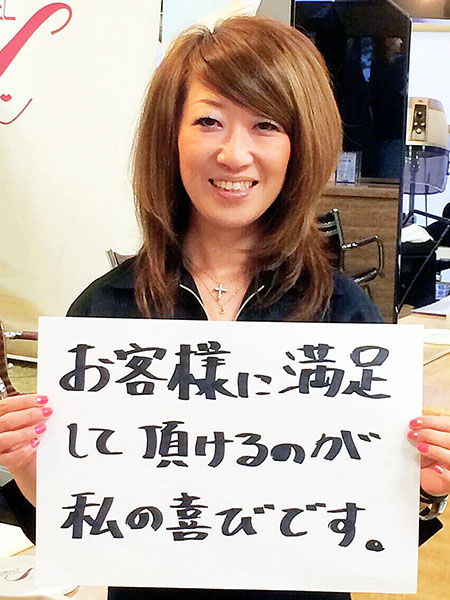 お客様に満足
して頂けるのが
私の喜びです。